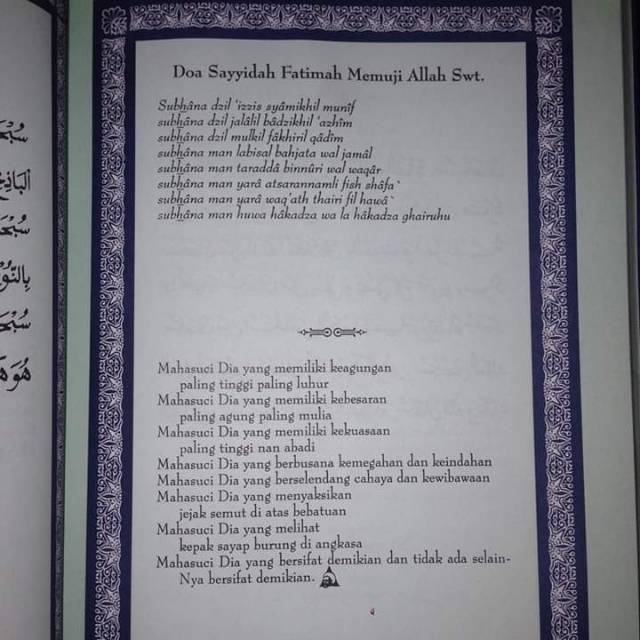 Doa Sayyidah Fatimah Memuji Allah Swt.
Subẖâna dzil 'izzis syâmikhil munîf
subẖâna dzil jalâlil bâdzikhil 'azhîm
subẖâna dzil mulkil fâkhiril qadîm
subẖâna man labisal bahjata wal jamâl
subẖâna man taraddâ binnûri wal waqâr
subẖâna man yarâ atsarannamli fish shâfa`
subẖâna man yarâ waq'ath thairi fil hawâ`
subẖâna man huwa hâkadza wa la hâkadza ghairuhu
Mahasuci Dia yang memiliki keagungan
paling tinggi paling luhur
Mahasuci Dia yang memiliki kebesaran
paling agung paling mulia
Mahasuci Dia yang memiliki kekuasaan
paling tinggi nan abadi
Mahasuci Dia yang berbusana kemegahan dan keindahan
Mahasuci Dia yang berselendang cahaya dan kewibawaan
Mahasuci Dia yang menyaksikan
jejak semut di atas bebatuan
Mahasuci Dia yang melihat
kepak sayap burung di angkasa
Mahasuci Dia yang bersifat demikian dan tidak ada selain-
Nya bersifat demikian.